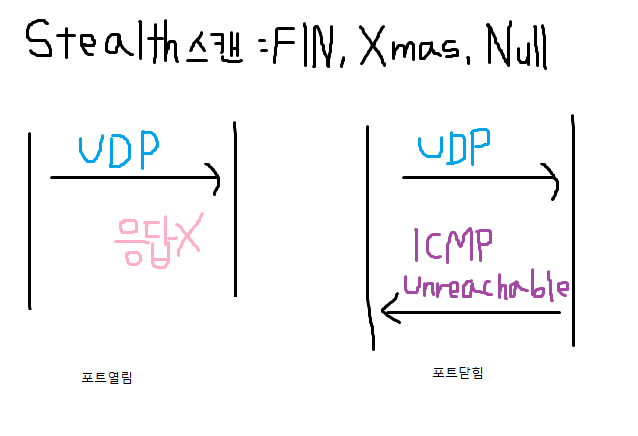 Stealth스캔 = FIN, Xmas, Null
UDP
응답X
포트열림
UDP
ICMP
Unreachable
포트닫힘